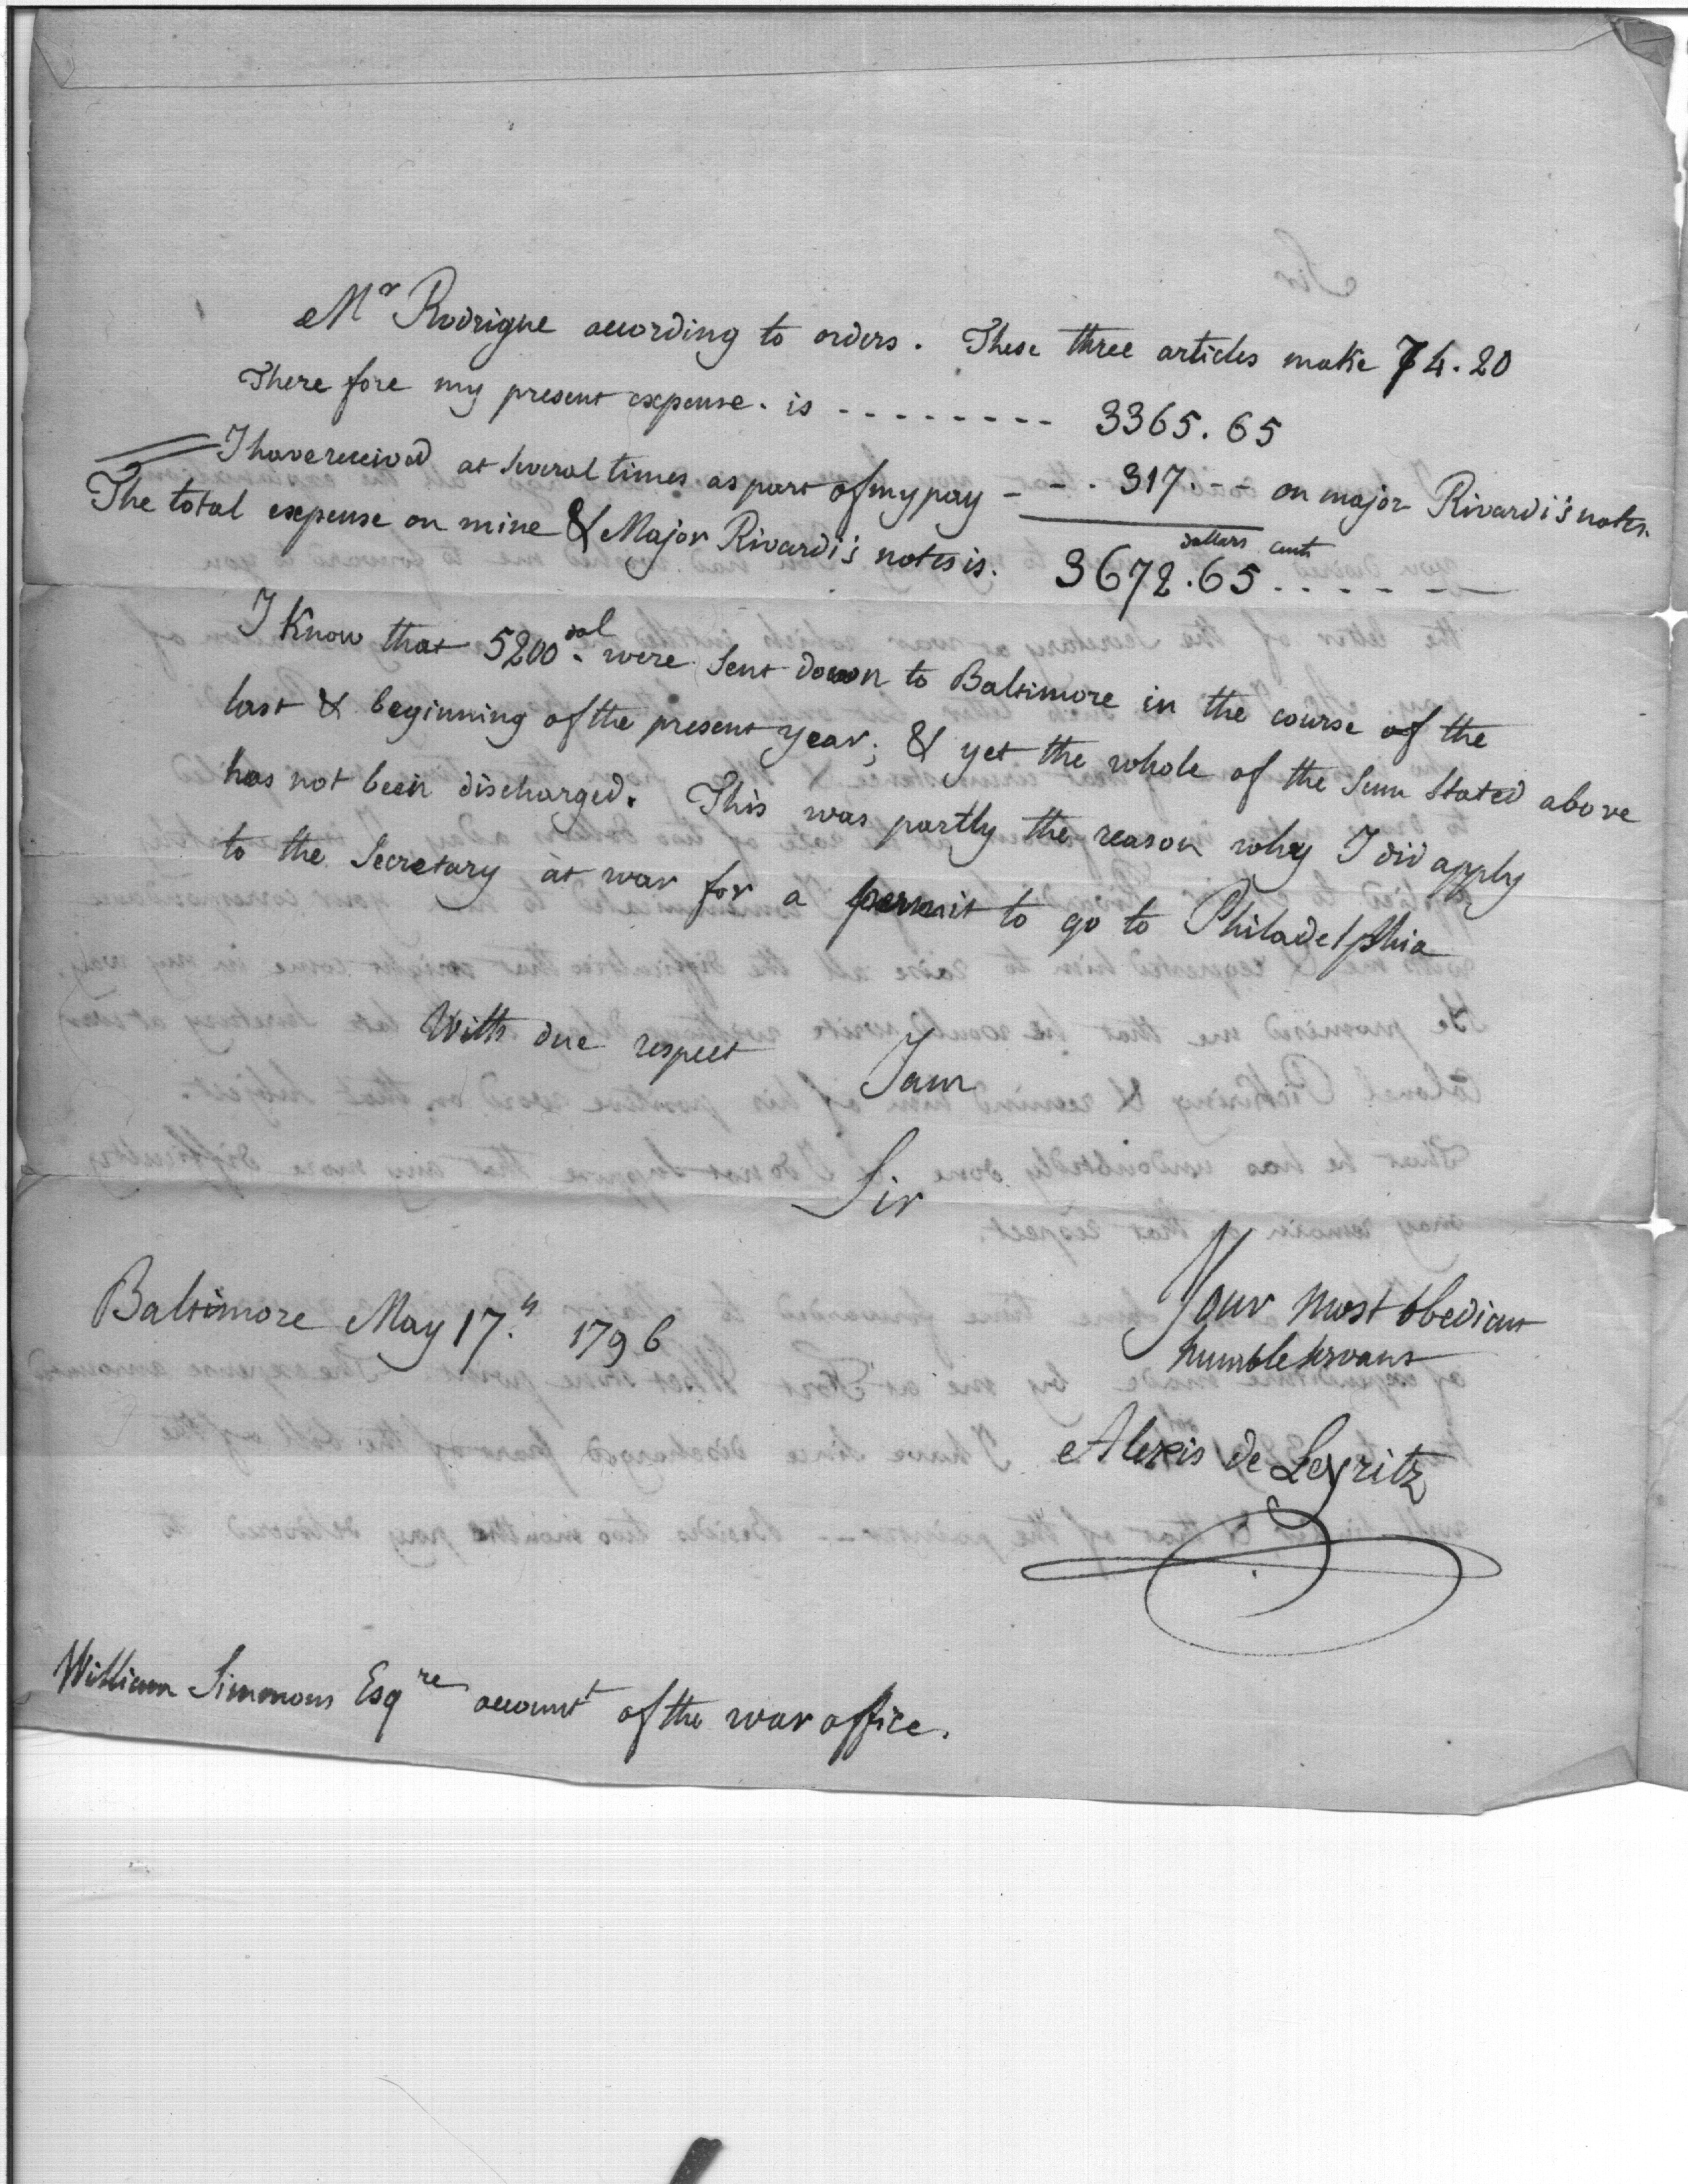 Mr Rodrigue according to orders. These three articles make 74.20
There fore my present expense. is - - - - - - - - 3365.65
I have received at several times as part of my pay - - . 317. - - on major Rivardi's notes.
The total expense on mine & Major Rivardi's notes is. 3672.65 . . . . . -
dollars cents
I Know that 5200 dol. were sent down to Baltimore in the course of the
last & beginning of the present year; & yet the whole of the Sum Stated above
has not been discharged. This was partly the reason why I did apply
to the Secretary at war for a permit to go to Philadelphia
With due respect
I am
Sir
Your most obedient
humble servant
Baltimore May 17.th 1796
Alexis de Leyritz
William Simmons Esqre accountt of the war office.